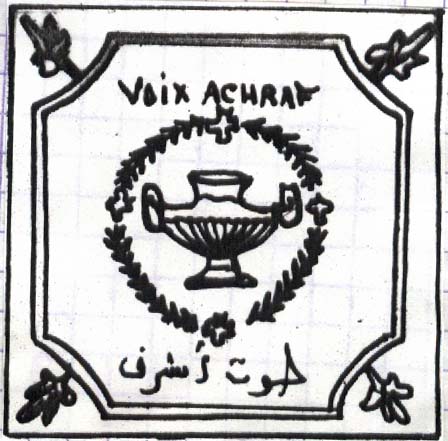 VOIX ACHRAF
صوت أشرف